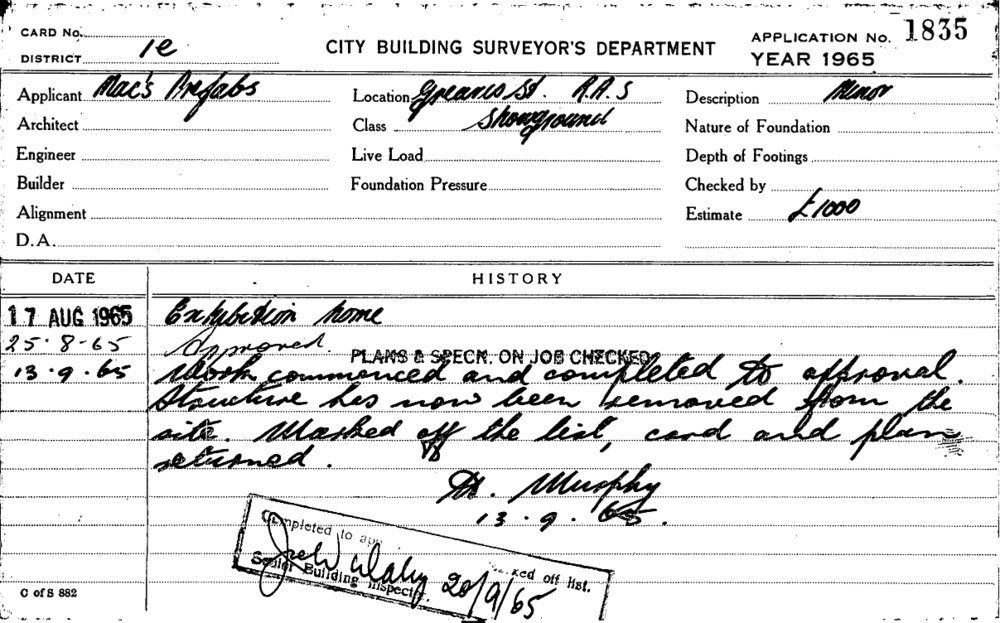 CARD No.
DISTRICT 1e
CITY BUILDING SURVEYOR'S DEPARTMENT
APPLICATION No. 1835
YEAR 1965
Applicant Mac's Prefabs
Location Greaves St. R.A.S
Description Minor
Architect
Class Showground
Nature of Foundation
Engineer
Live Load
Depth of Footings
Builder
Foundation Pressure
Checked by
Alignment
Estimate £1000
D.A.
DATE HISTORY
17 AUG 1965 Exhibition home
25.8.65 Approved.
PLANS & SPECN. ON JOB CHECKED
13.9.65 Work commenced and completed to approval.
Structure has now been removed from the
site. Marked off the list, card and plan
returned.
Murphy
13.9.65.
Completed to
ked off list.
Senior Building Inspector
20/9/65
C of S 882